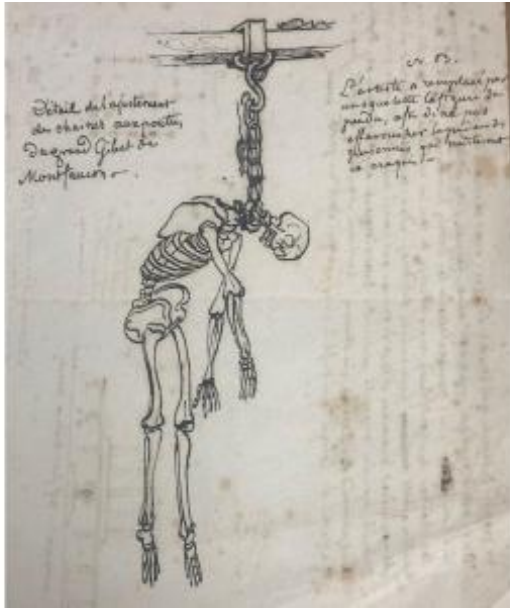 Détail de l'ajustement
des chaines aux poutres
du grand Gibet de
Montfaucon.
L'artiste a remplacé par
un squelette la figure du
pendu, afin de ne pas
personnes qui
ce croquis.